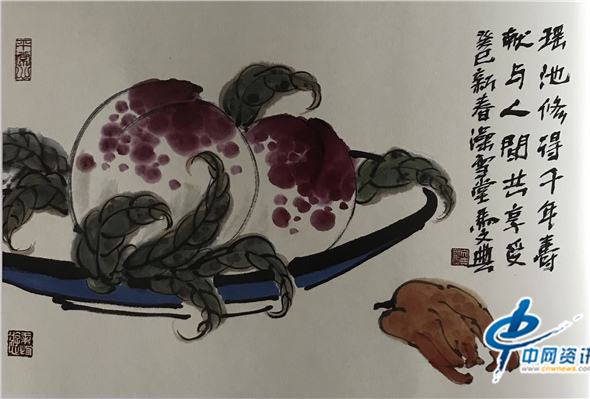 瑶池修得千年寿
献与人间共享受
癸巳新春澡雪堂
中网资讯
www.cnwnews.com